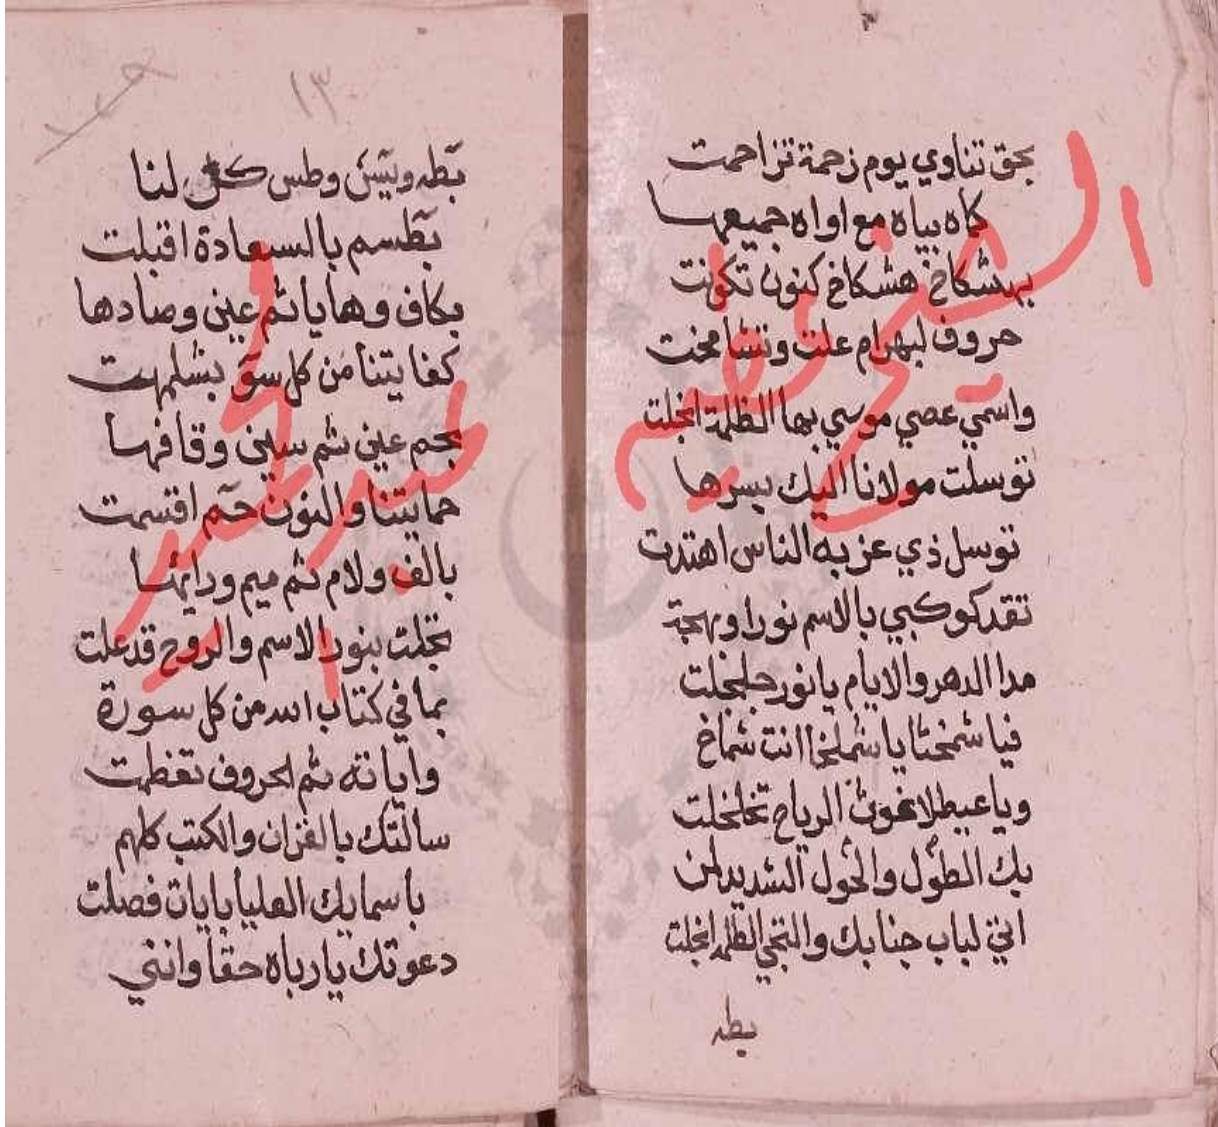 بحق تناوي يوم زحمة تزاحمت
كماه بياه مع اواه جميعها
بهشكاخ هشكاخ كنون تكونت
حروف لبهرام علت وتشامخت
واسمي عصي موسي بها الظلمة انجلت
توسلت مولانا اليك بسرها
توسل ذي عز به الناس اهتدت
تقد كوكبي بالاسم نورا وبهجة
مدا الدهر والايام يا نور جلجلت
فيا شمخثا يا شملخا انت شماخ
ويا عيطلا غوث الرياح تخلخلت
بك الطول والحول الشديد لمن
اتى لباب جنابك والتجي الظلمه انجلت
بطه
١٣
بطه ويس وطس كن لنا
بطسم بالسعادة اقبلت
بكاف وهايا ثم عين وصادها
كفايتنا من كل سوء بشلمهت
بحم عين ثم سين وقافها
حمايتنا والنون حم اقسمت
بالف ولام ثم ميم ورائها
تجلت بنور الاسم والروح قد علت
بما في كتاب الله من كل سورة
واياته ثم الحروف تعظمت
سالتك بالقران والكتب كلهم
باسمايك العليا بايات فصلت
دعوتك يا رباه حقا وانني